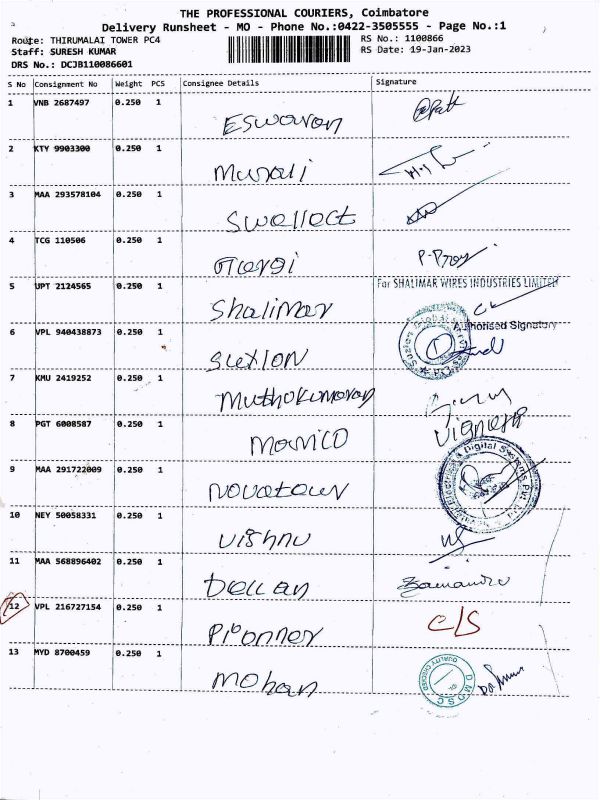 THE PROFESSIONAL COURIERS, Coimbatore
Delivery Runsheet - MO - Phone No.:0422-3505555 - Page No.:1
Route: THIRUMALAI TOWER PC4
RS No.: 1100866
Staff: SURESH KUMAR
RS Date: 19-Jan-2023
DRS No.: DCJB110086601
S No Consignment No Weight PCS Consignee Details Signature
1 VNB 2687497 0.250 1
Eswaran
2 KTY 9903300 0.250 1
Murali
3 MAA 293578104 0.250 1
Swellect
4 TCG 110506 0.250 1
P-Proy
5 UPT 2124565 0.250 1 For SHALIMAR WIRES INDUSTRIES LIMITED
Shalimar
Authorised Signatory
6 VPL 940438873 0.250 1
Suzlon
7 KMU 2419252 0.250 1
Muthokumaran
8 PGT 6008587 0.250 1 Vignesh
Marico
9 MAA 291722009 0.250 1
10 NEY 50058331 0.250 1
Vishnu
11 MAA 568896402 0.250 1
Deccan
12 VPL 216727154 0.250 1 C/S
Pioneer
13 MYD 8700459 0.250 1
Mohan
QUALITY CHECKED
DMDSC